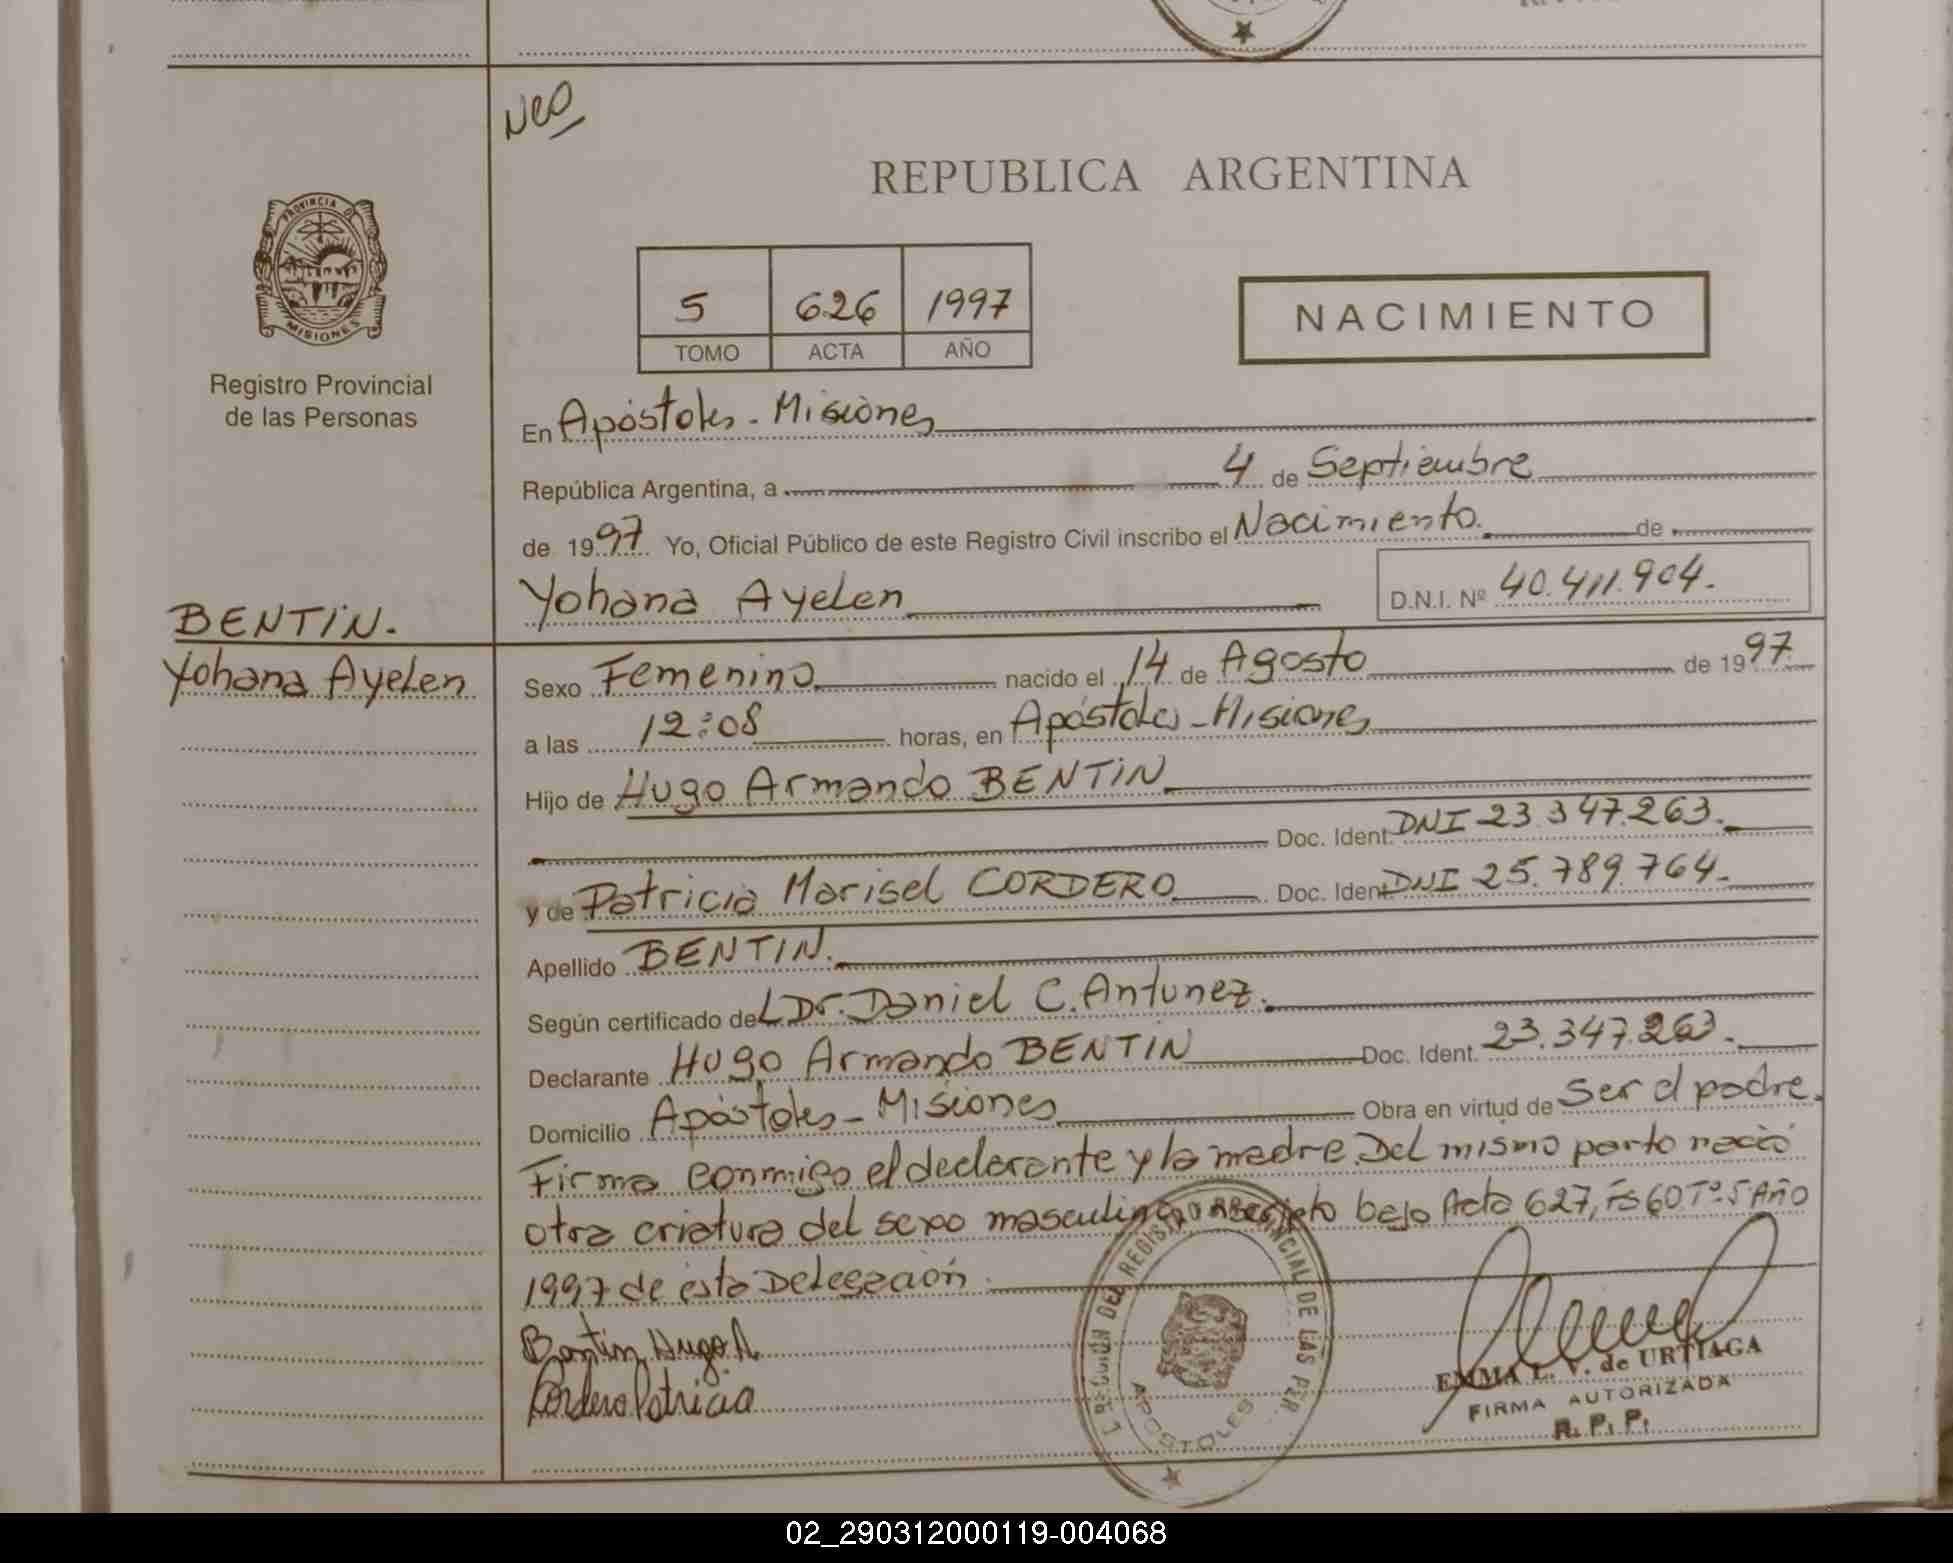 Neo
REPUBLICA ARGENTINA
PROVINCIA DE
MISIONES
Registro Provincial
de las Personas
5 626 1997
TOMO ACTA AÑO
NACIMIENTO
En Apóstoles - Misiones
República Argentina, a 4 de Septiembre
de 1997 Yo, Oficial Público de este Registro Civil inscribo el Nacimiento. de
Yohana Ayelen D.N.I. Nº 40.411.904.
BENTIN.
Yohana Ayelen
Sexo Femenino nacido el 14 de Agosto de 1997
a las 12:08 horas, en Apóstoles - Misiones
Hijo de Hugo Armando BENTIN
Doc. Ident. DNI 23.347.263.
y de Patricia Marisel CORDERO Doc. Ident. DNI 25.789.764.
Apellido BENTIN.
Según certificado del Dr. Daniel C. Antunez.
Declarante Hugo Armando BENTIN Doc. Ident. 23.347.263.
Domicilio Apóstoles - Misiones Obra en virtud de ser el padre.
Firma conmigo el declarante y la madre. Del mismo parto nació
otra criatura del sexo masculino inscripto bajo Acta 627, Fs 60 Tº 5 Año
1997 de ésta Delegación.
Bentin Hugo A.
Cordero Patricia
DEL REGISTRO PROVINCIAL DE LAS PER.
APOSTOLES
EMMA L. V. de URTIAGA
FIRMA AUTORIZADA
R. P. P.
02_290312000119-004068